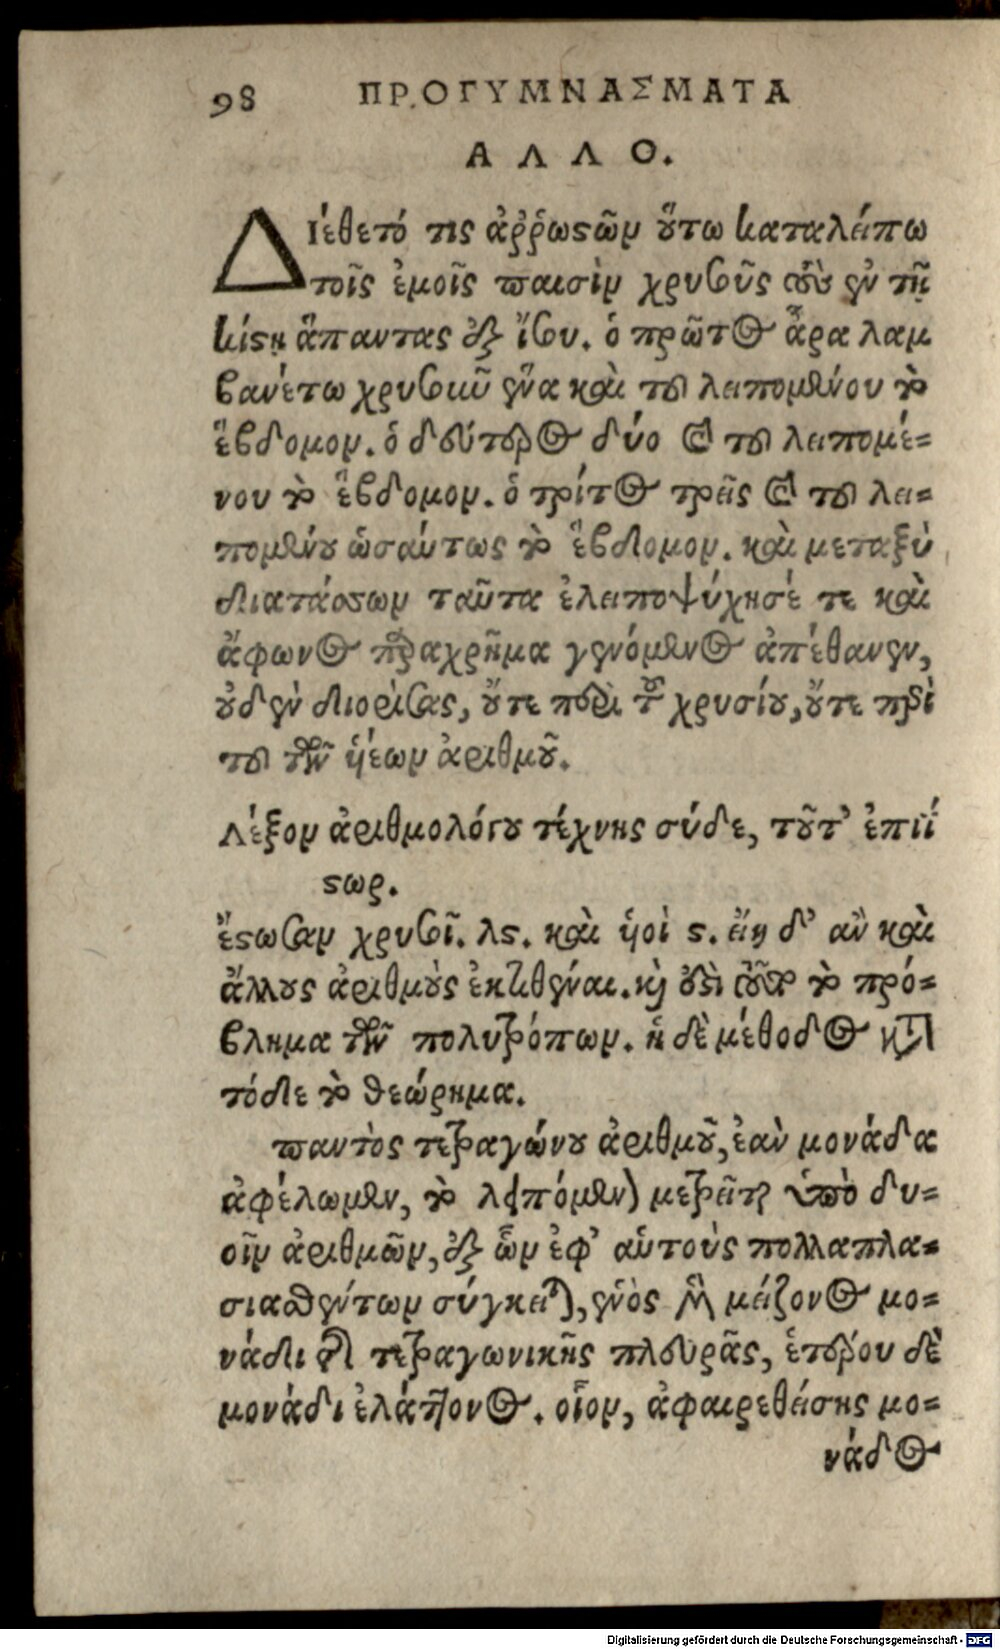 98 ΠΡΟΓΥΜΝΑΣΜΑΤΑ
ΑΛΛΟ.
Διέθετό τις ἀῤῥωςῶν ȣ̔́τω καταλείπω
τοῖς ἐμοῖς παισὶν χρυσοῦς τοὺς ἐν τῇ
κίςῃ ἅπαντας ἐξ ἴσου. ὁ πρῶτος ἆρα λαμ
βανέτω χρυσοῦν ἕνα καὶ τοῦ λειπομένου τὸ
ἕβδομον. ὁ δεύτερος δύο καὶ τοῦ λειπομέ=
νου τὸ ἕβδομον. ὁ τρίτος τρεῖς καὶ τοῦ λει=
πομένȣ ὡσαύτως τὸ ἕβδομον. καὶ μεταξὺ
διατάσσων ταῦτα ἐλειποψύχησέ τε καὶ
ἄφωνος παραχρῆμα γενόμενος ἀπέθανεν,
ȣ̓δὲν διορίσας, ȣ̓́τε περὶ τοῦ χρυσίȣ, ȣ̓́τε περὶ
τοῦ τῶν ὑέων ἀριθμȣ͂.
Λέξον ἀριθμολόγȣ τέχνης σύδε, τȣ͂τ’ ἐπιΐ
ςωρ.
ἔςωσαν χρυσοῖ. λς. καὶ ὑοὶ ς. εἴη δ’ ἂν καὶ
ἄλλȣς ἀριθμȣ̀ς ἐκτεθῆναι. καὶ ȣ̓δὲ τὸ πρό=
βλημα τῶν πολυτρόπων. ἡ δὲ μέθοδος κατὰ
τόδε τὸ θεώρημα.
παντὸς τετραγώνȣ ἀριθμȣ͂, ἐὰν μονάδα
ἀφέλωμεν, τὸ λειπόμενον μετρεῖται ὑπὸ δυ=
οῖν ἀριθμῶν, ἐξ ὧν ἐφ’ αὑτοὺς πολλαπλα=
σιασθέντων σύγκειται, ἑνὸς μὲν μείζονος μο=
νάδι τῆς τετραγωνικῆς πλευρᾶς, ἑτέρου δὲ
μονάδι ἐλάττονος. οἷον, ἀφαιρεθείσης μο=
νάδος
Digitalisierung gefördert durch die Deutsche Forschungsgemeinschaft - DFG